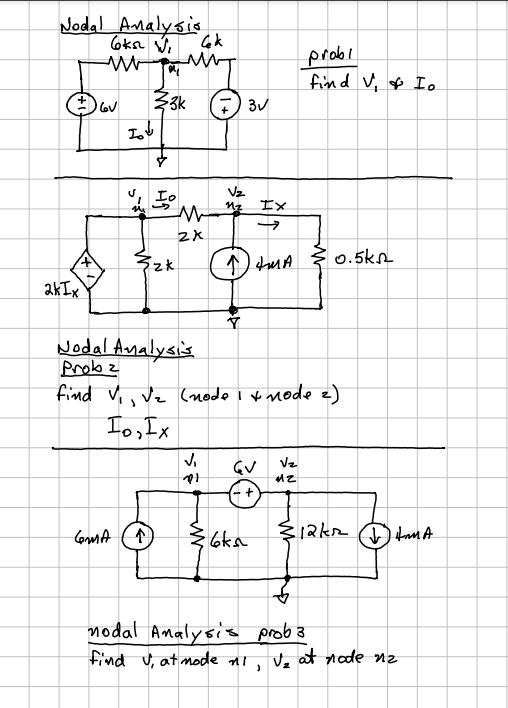 Nodal Analysis
6kΩ V₁ 6k
n₁
prob1
find V₁ & I₀
+
-
6V
3k
-
+
3V
I₀↓
V₁ I₀ V₂
n₁ → n₂ Ix
→
2k
+
-
2k
↑
4mA
0.5kΩ
2kIx
Nodal Analysis
Prob 2
find V₁, V₂ (node 1 & node 2)
I₀, Ix
V₁ 6V V₂
n1 - + n2
6mA
↑
6kΩ
12kΩ
↓
4mA
nodal Analysis prob 3
find V₁ at node n1, V₂ at node n2